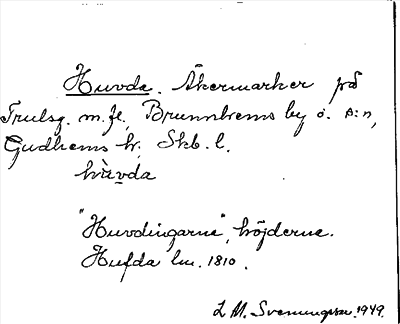 Huvda. Åkermarker på
Trulsg. m. fl., Brunnhems by o. s:n,
Gudhems hr, Skb. l.
hùvda
"Huvdingarne", höjderne.
Hufda lm. 1810.
L. M. Svenungsson. 1949.